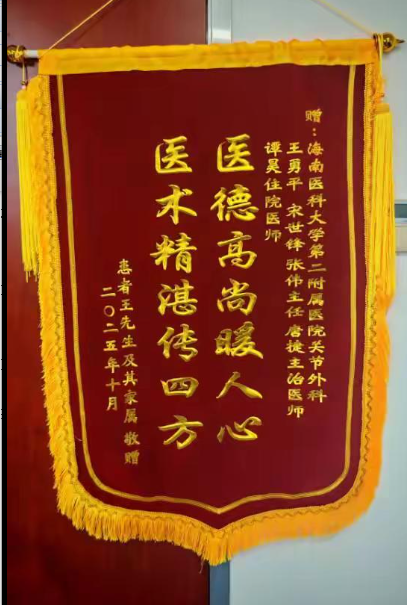 赠：海南医科大学第二附属医院关节外科
王勇平 宋世锋 张伟主任 唐捷主治医师
谭昊住院医师
医德高尚暖人心
医术精湛传四方
患者王先生及其家属 敬赠
二〇二五年十月